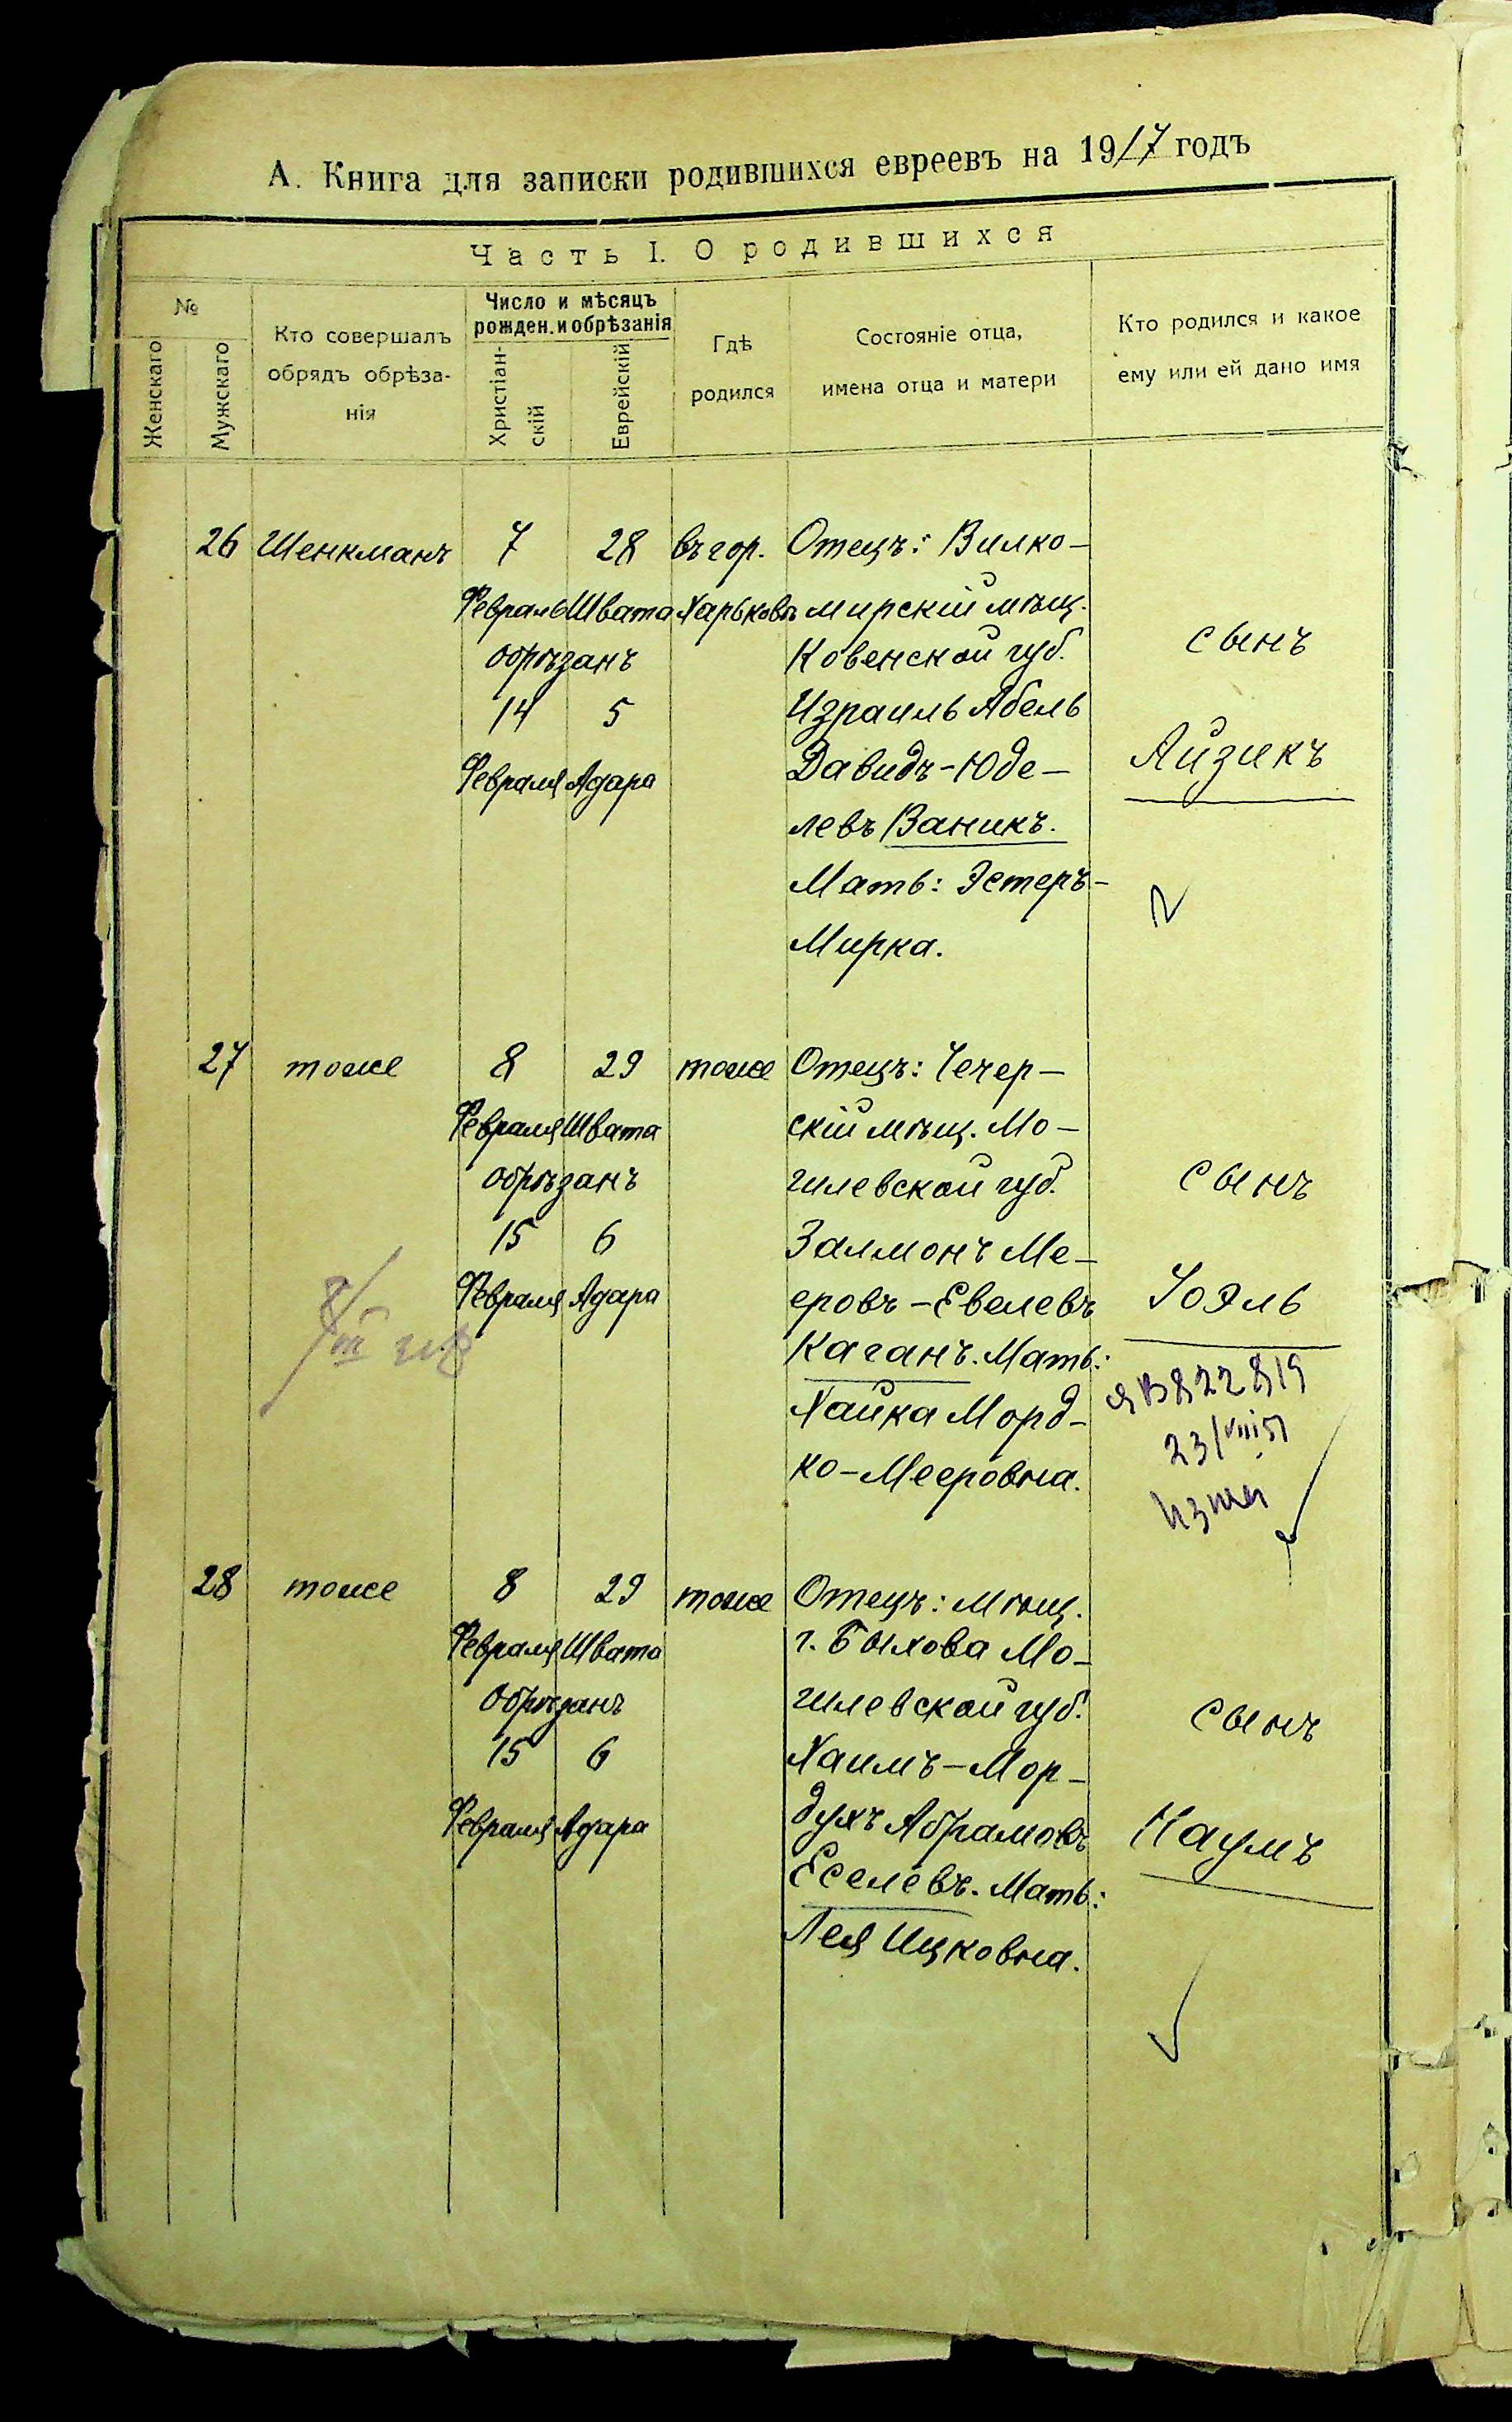 А. Книга для записки родившихся евреевъ на 1917 годъ
Часть I. О родившихся
№
Женскаго
Мужскаго
Кто совершалъ
обрядъ обрѣза-
нія
Число и мѣсяцъ
рожден. и обрѣзанія
Христіан-
скій
Еврейскій
Гдѣ
родился
Состояніе отца,
имена отца и матери
Кто родился и какое
ему или ей дано имя
26 Шенкманъ 7 28 въ гор. Отецъ: Вилко-
Февраль Швата Харьковѣ мирскій мѣщ.
обрѣзанъ Ковенской губ. сынъ
14 5 Израиль Абель
Февраля Адара Давидъ-Юде- Айзикъ
левъ Ваникъ.
Мать: Эстеръ-
Мирка.
27 тоже 8 29 тоже Отецъ: Чечер-
Февраля Швата скій мѣщ. Мо-
обрѣзанъ гилевской губ. сынъ
15 6 Залмонъ Ме-
Февраля Адара еровъ-Евелевъ Іоэль
Каганъ. Мать:
Хайка Морд-
ко-Мееровна.
822819
23/VIII 51
28 тоже 8 29 тоже Отецъ: мѣщ.
Февраля Швата г. Быхова Мо-
обрѣзанъ гилевской губ. сынъ
15 6 Хаимъ-Мор-
Февраля Адара духъ Абрамовъ Наумъ
Еселевъ. Мать:
Лея Ицковна.